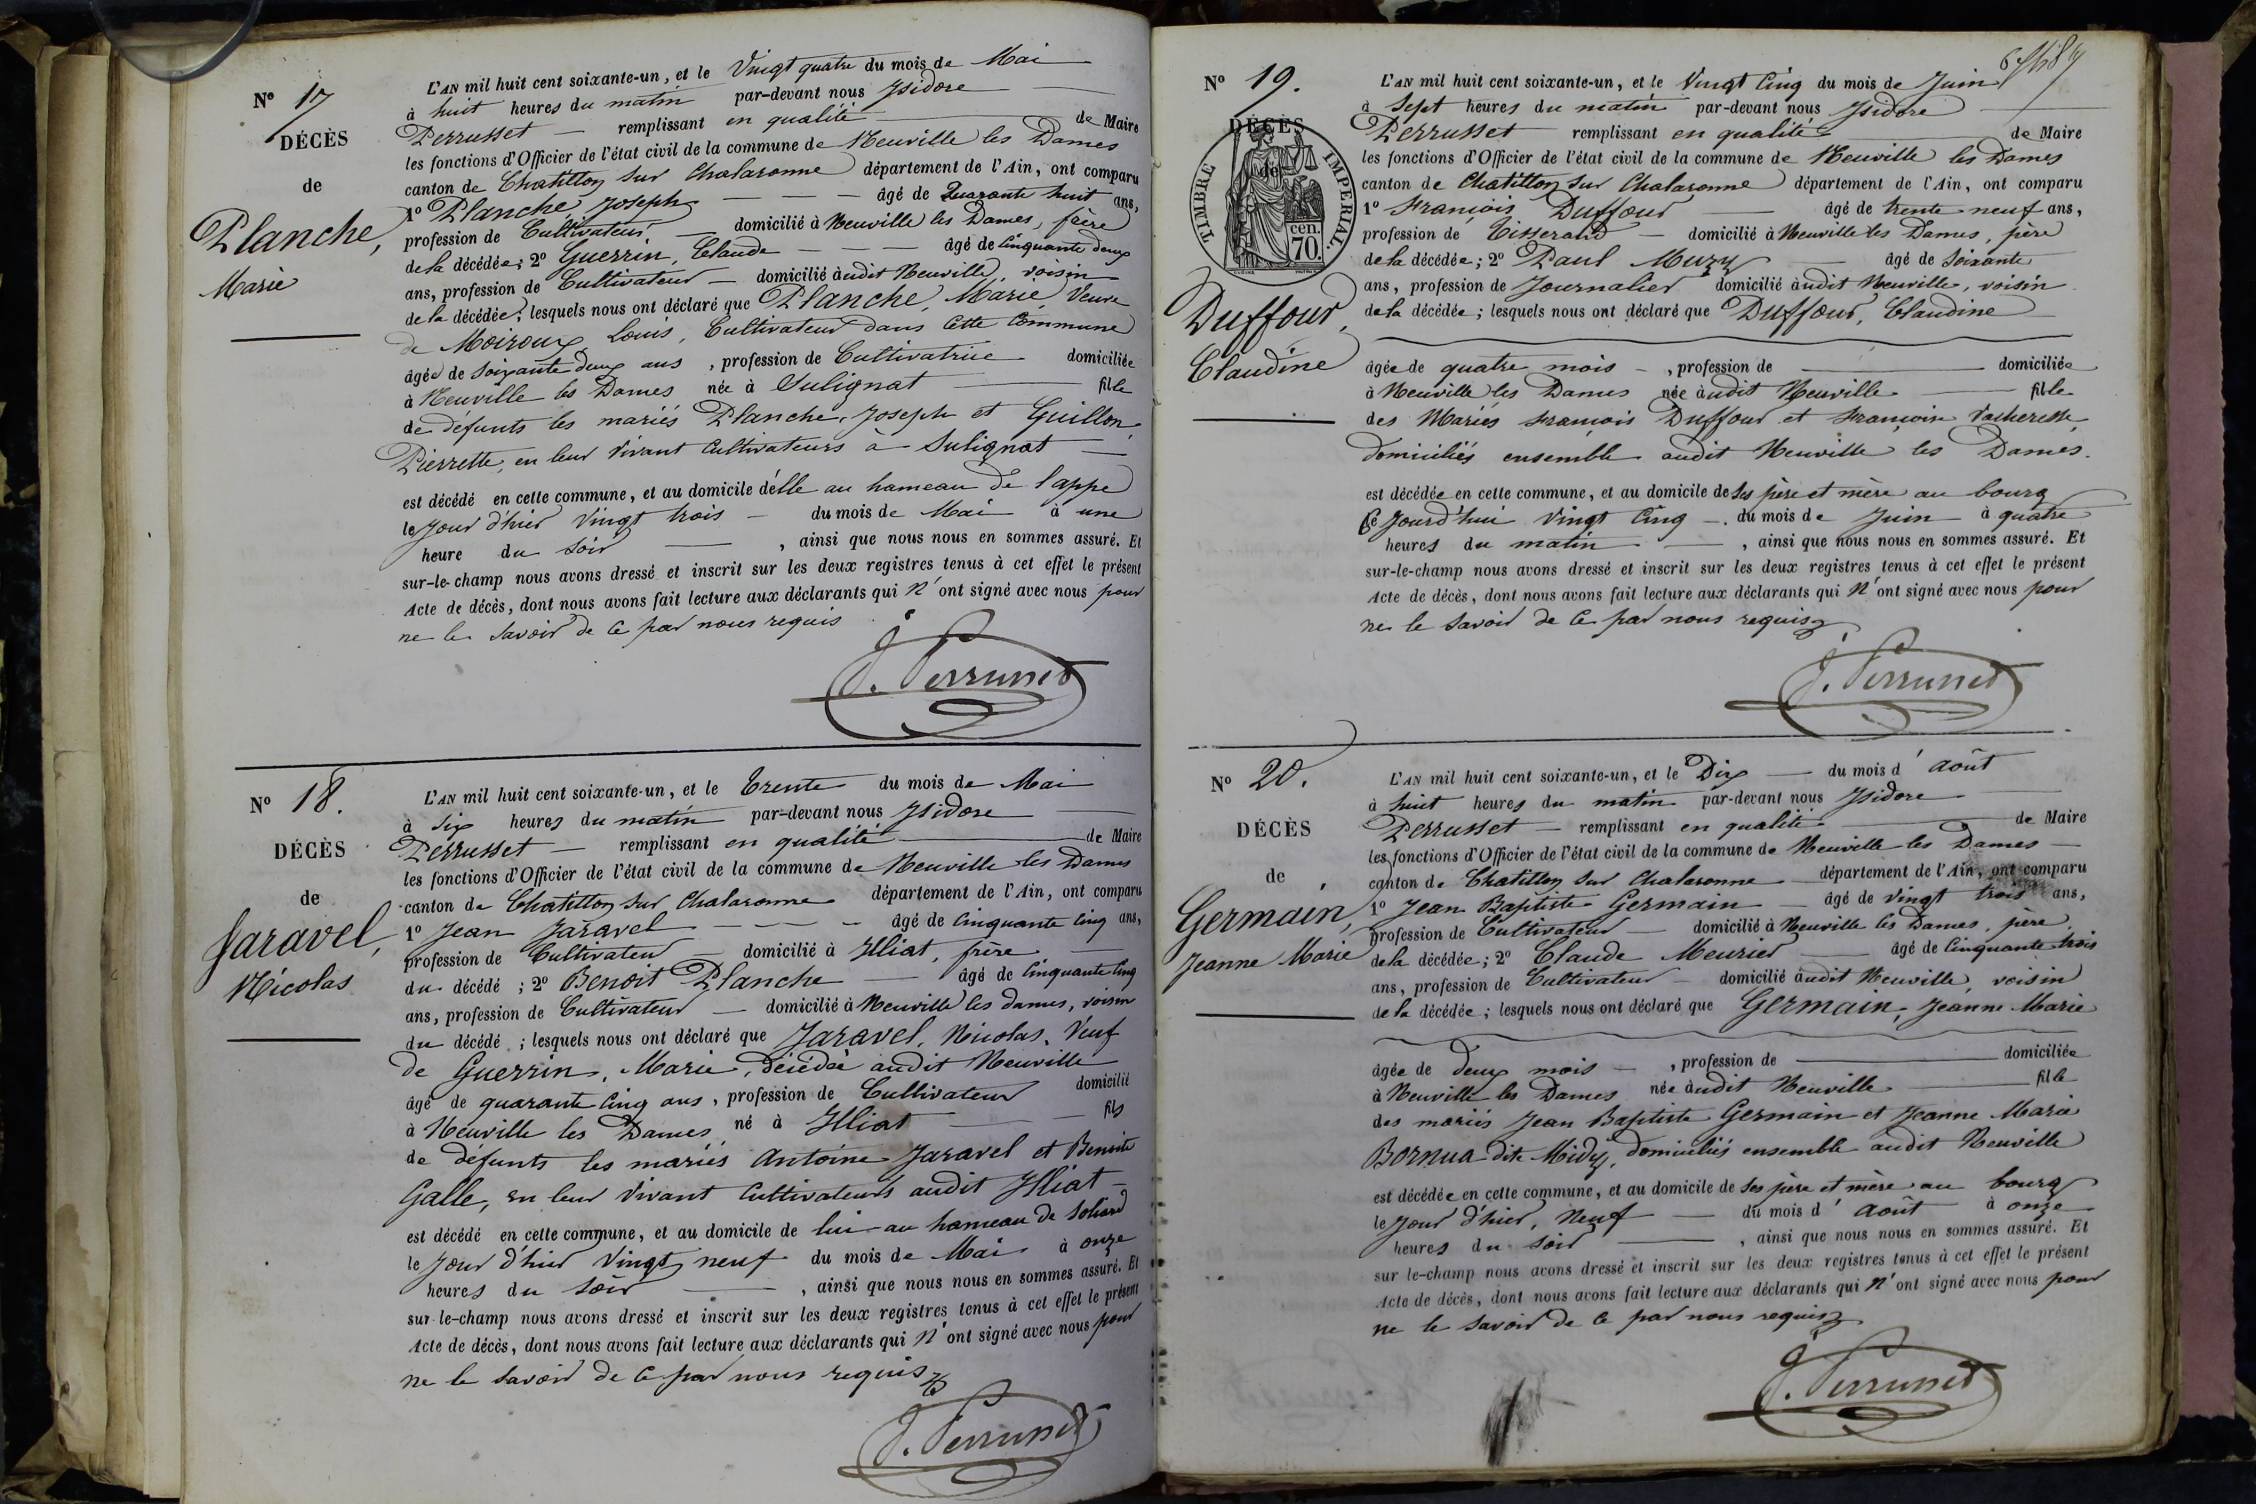 N° 17
DÉCÈS
de
Planche,
Marie
L'AN mil huit cent soixante-un, et le Vingt quatre du mois de Mai
à huit heures du matin par-devant nous Isidore
Perrusset remplissant en qualité de Maire
les fonctions d'Officier de l'état civil de la commune de Neuville les Dames
canton de Chatillon sur Chalaronne département de l'Ain, ont comparu
1° Planche, Joseph âgé de Quarante huit ans,
profession de Cultivateur domicilié à Neuville les Dames, frère
de la décédée; 2° Guerrin, Claude âgé de Cinquante deux
ans, profession de Cultivateur domicilié audit Neuville, voisin
de la décédée; lesquels nous ont déclaré que Planche, Marie, Veuve
de Moiroux, Louis, Cultivateur dans cette Commune
âgée de soixante deux ans, profession de Cultivatrice domiciliée
à Neuville les Dames née à Sulignat fille
de défunts les mariés Planche, Joseph et Guillon,
Pierrette, en leur vivant Cultivateurs à Sulignat
est décédé en cette commune, et au domicile d'elle au hameau de Lappe
le jour d'hier vingt trois du mois de Mai à une
heure du soir, ainsi que nous nous en sommes assuré. Et
sur-le-champ nous avons dressé et inscrit sur les deux registres tenus à cet effet le présent
Acte de décès, dont nous avons fait lecture aux déclarants qui n'ont signé avec nous pour
ne le savoir de ce par nous requis
J. Perrusset
N° 18.
DÉCÈS
de
Jaravel,
Nicolas
L'AN mil huit cent soixante-un, et le Trente du mois de Mai
à Six heures du matin par-devant nous Isidore
Perrusset remplissant en qualité de Maire
les fonctions d'Officier de l'état civil de la commune de Neuville les Dames
canton de Chatillon sur Chalaronne département de l'Ain, ont comparu
1° Jean Jaravel âgé de Cinquante Cinq ans,
profession de Cultivateur domicilié à Illiat, frère
du décédé; 2° Benoit Planche âgé de Cinquante Cinq
ans, profession de Cultivateur domicilié à Neuville les Dames, voisin
du décédé; lesquels nous ont déclaré que Jaravel, Nicolas, Veuf
de Guerrin, Marie, décédée audit Neuville
âgé de quarante Cinq ans, profession de Cultivateur domicilié
à Neuville les Dames né à Illiat fils
de défunts les mariés Antoine Jaravel et Benoite
Galle, en leur vivant Cultivateurs audit Illiat
est décédé en cette commune, et au domicile de lui au hameau de
le jour d'hier Vingt neuf du mois de Mai à onze
heures du soir, ainsi que nous nous en sommes assuré. Et
sur-le-champ nous avons dressé et inscrit sur les deux registres tenus à cet effet le présent
Acte de décès, dont nous avons fait lecture aux déclarants qui n'ont signé avec nous pour
ne le savoir de ce par nous requis
J. Perrusset
N° 19.
DÉCÈS
de
TIMBRE IMPERIAL.
cen. 70.
Duffour,
Claudine
L'AN mil huit cent soixante-un, et le Vingt Cinq du mois de Juin
à Sept heures du matin par-devant nous Isidore
Perrusset remplissant en qualité de Maire
les fonctions d'Officier de l'état civil de la commune de Neuville les Dames
canton de Chatillon sur Chalaronne département de l'Ain, ont comparu
1° François Duffour âgé de trente neuf ans,
profession de Tisserand domicilié à Neuville les Dames, père
de la décédée; 2° Paul Muzy âgé de Soixante
ans, profession de Journalier domicilié audit Neuville, voisin
de la décédée; lesquels nous ont déclaré que Duffour, Claudine
âgée de quatre mois, profession de domiciliée
à Neuville les Dames née audit Neuville fille
des Mariés François Duffour et Françoise Vacheresse,
domiciliés ensemble audit Neuville les Dames.
est décédée en cette commune, et au domicile de ses père et mère au bourg
ce jourd'hui Vingt Cinq du mois de Juin à quatre
heures du matin, ainsi que nous nous en sommes assuré. Et
sur-le-champ nous avons dressé et inscrit sur les deux registres tenus à cet effet le présent
Acte de décès, dont nous avons fait lecture aux déclarants qui n'ont signé avec nous pour
ne le savoir de ce par nous requis
J. Perrusset
N° 20.
DÉCÈS
de
Germain,
Jeanne Marie
L'AN mil huit cent soixante-un, et le Dix du mois d'Août
à huit heures du matin par-devant nous Isidore
Perrusset remplissant en qualité de Maire
les fonctions d'Officier de l'état civil de la commune de Neuville les Dames
canton de Chatillon sur Chalaronne département de l'Ain, ont comparu
1° Jean Baptiste Germain âgé de vingt trois ans,
profession de Cultivateur domicilié à Neuville les Dames, père
de la décédée; 2° Claude Meurier âgé de Cinquante trois
ans, profession de Cultivateur domicilié audit Neuville, voisin
de la décédée; lesquels nous ont déclaré que Germain, Jeanne Marie
âgée de deux mois, profession de domiciliée
à Neuville les Dames née audit Neuville fille
des mariés Jean Baptiste Germain et Jeanne Marie
dite Midy, domiciliés ensemble audit Neuville
est décédée en cette commune, et au domicile de ses père et mère au bourg
le jour d'hier, Neuf du mois d'Août à onze
heures du soir, ainsi que nous nous en sommes assuré. Et
sur le-champ nous avons dressé et inscrit sur les deux registres tenus à cet effet le présent
Acte de décès, dont nous avons fait lecture aux déclarants qui n'ont signé avec nous pour
ne le savoir de ce par nous requis
J. Perrusset